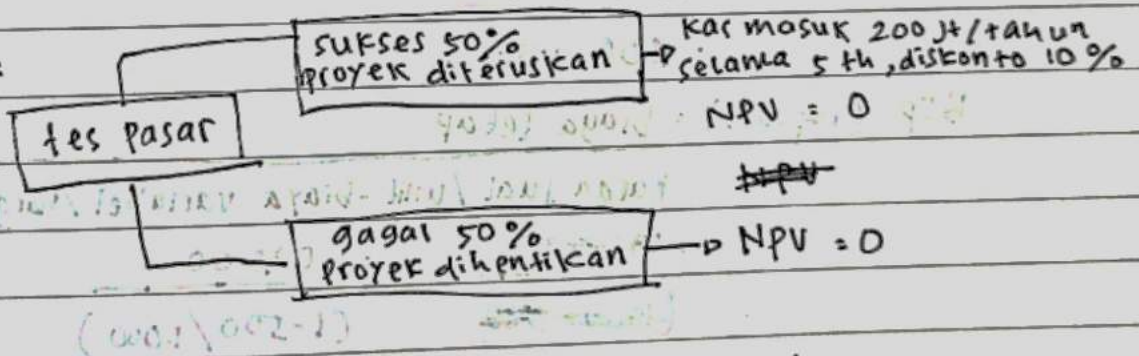 tes pasar
sukses 50%
proyek diteruskan
kas masuk 200 jt/tahun
selama 5 th, diskonto 10%
NPV = 0
gagal 50%
proyek dihentikan
NPV = 0